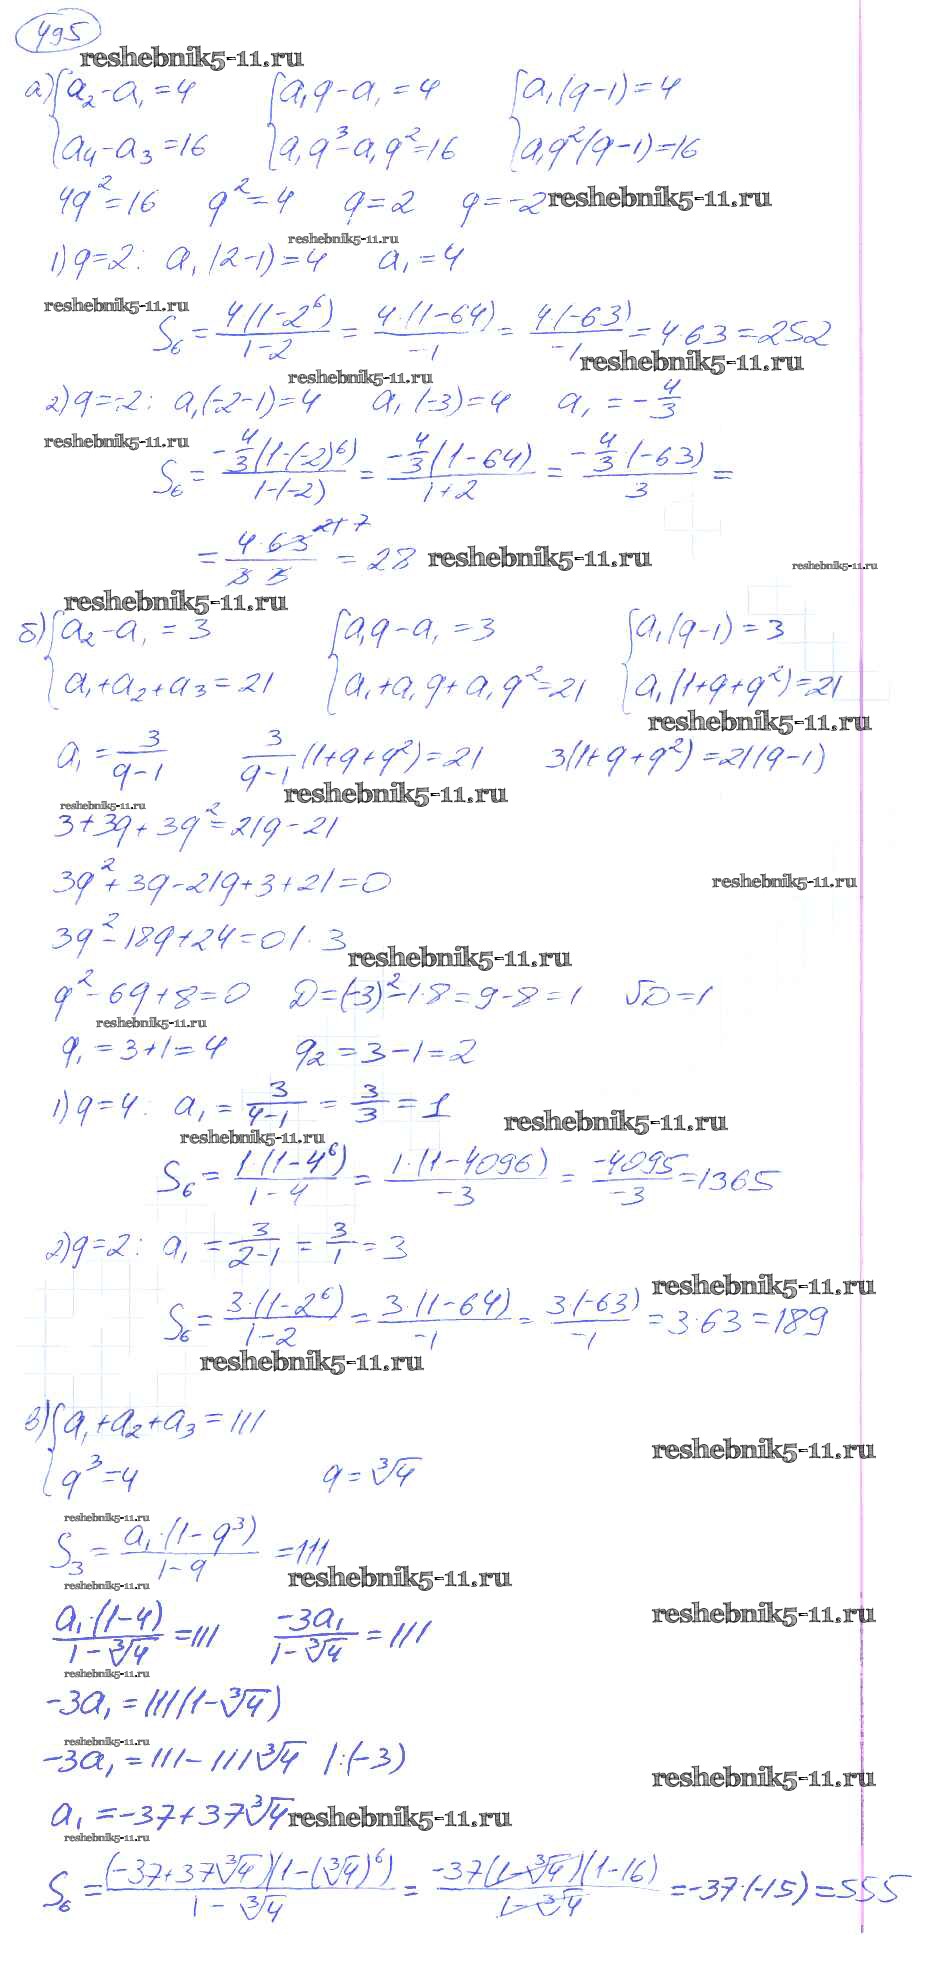 495
reshebnik5-11.ru
а) {a₂ - a₁ = 4   {a₁q - a₁ = 4   {a₁(q-1) = 4
{a₄ - a₃ = 16   {a₁q³ - a₁q² = 16   {a₁q²(q-1) = 16
4q² = 16   q² = 4   q = 2   q = -2 reshebnik5-11.ru
reshebnik5-11.ru
1) q = 2:   a₁(2-1) = 4   a₁ = 4
reshebnik5-11.ru
S₆ = 4(1-2⁶)/(1-2) = 4·(1-64)/(-1) = 4(-63)/(-1) = 4·63 = 252
reshebnik5-11.ru
reshebnik5-11.ru
2) q = -2:   a₁(-2-1) = 4   a₁(-3) = 4   a₁ = -4/3
reshebnik5-11.ru
S₆ = -4/3(1-(-2)⁶)/(1-(-2)) = -4/3(1-64)/(1+2) = -4/3(-63)/3 =
= 4·63 21 7/(3 3) = 28 reshebnik5-11.ru
reshebnik5-11.ru
reshebnik5-11.ru
б) {a₂ - a₁ = 3   {a₁q - a₁ = 3   {a₁(q-1) = 3
{a₁ + a₂ + a₃ = 21   {a₁ + a₁q + a₁q² = 21   {a₁(1+q+q²) = 21
reshebnik5-11.ru
a₁ = 3/(q-1)   3/(q-1)(1+q+q²) = 21   3(1+q+q²) = 21(q-1)
reshebnik5-11.ru
reshebnik5-11.ru
3+3q+3q² = 21q-21
3q²+3q-21q+3+21 = 0
reshebnik5-11.ru
3q²-18q+24 = 0 |·3
reshebnik5-11.ru
q²-6q+8 = 0   D = (-3)²-1·8 = 9-8 = 1   √D = 1
reshebnik5-11.ru
q₁ = 3+1 = 4   q₂ = 3-1 = 2
1) q = 4:   a₁ = 3/(4-1) = 3/3 = 1
reshebnik5-11.ru
reshebnik5-11.ru
S₆ = 1·(1-4⁶)/(1-4) = 1·(1-4096)/(-3) = -4095/(-3) = 1365
2) q = 2:   a₁ = 3/(2-1) = 3/1 = 3
reshebnik5-11.ru
S₆ = 3·(1-2⁶)/(1-2) = 3·(1-64)/(-1) = 3(-63)/(-1) = 3·63 = 189
reshebnik5-11.ru
в) {a₁ + a₂ + a₃ = 111
reshebnik5-11.ru
{q³ = 4   q = ∛4
reshebnik5-11.ru
S₃ = a₁·(1-q³)/(1-q) = 111
reshebnik5-11.ru
reshebnik5-11.ru
reshebnik5-11.ru
a₁·(1-4)/(1-∛4) = 111   -3a₁/(1-∛4) = 111
reshebnik5-11.ru
-3a₁ = 111(1-∛4)
reshebnik5-11.ru
-3a₁ = 111-111∛4 |:(-3)
reshebnik5-11.ru
a₁ = -37+37∛4 reshebnik5-11.ru
reshebnik5-11.ru
S₆ = (-37+37∛4)(1-(∛4)⁶)/(1-∛4) = -37(1-∛4)(1-16)/(1-∛4) = -37·(-15) = 555